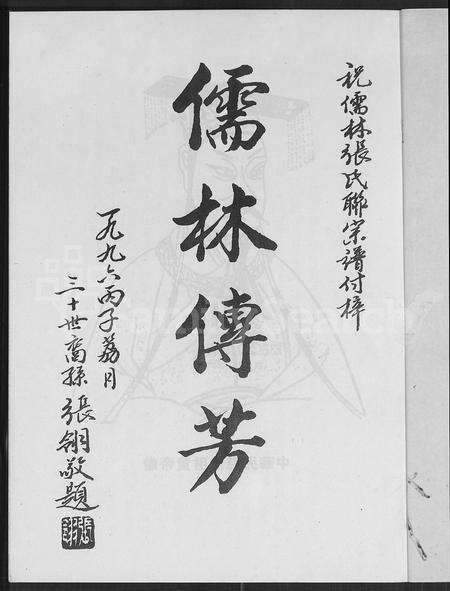 祝儒林張氏聯宗譜付梓
儒林傳芳
一九九六丙子荔月
三十世裔孫張敬題